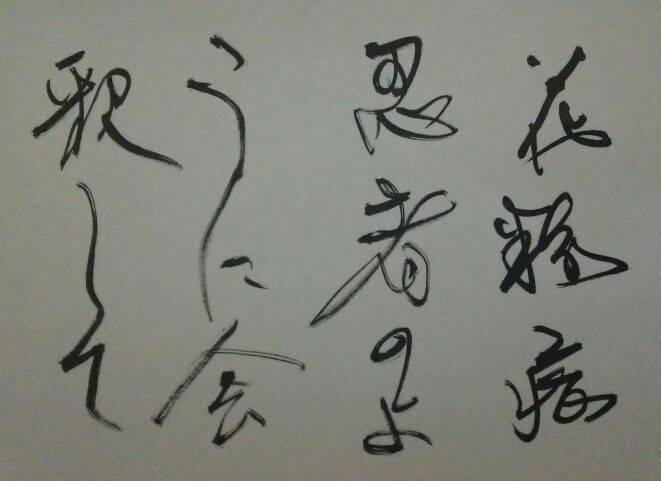 花粉症
忍者のよ
うに会
釈して